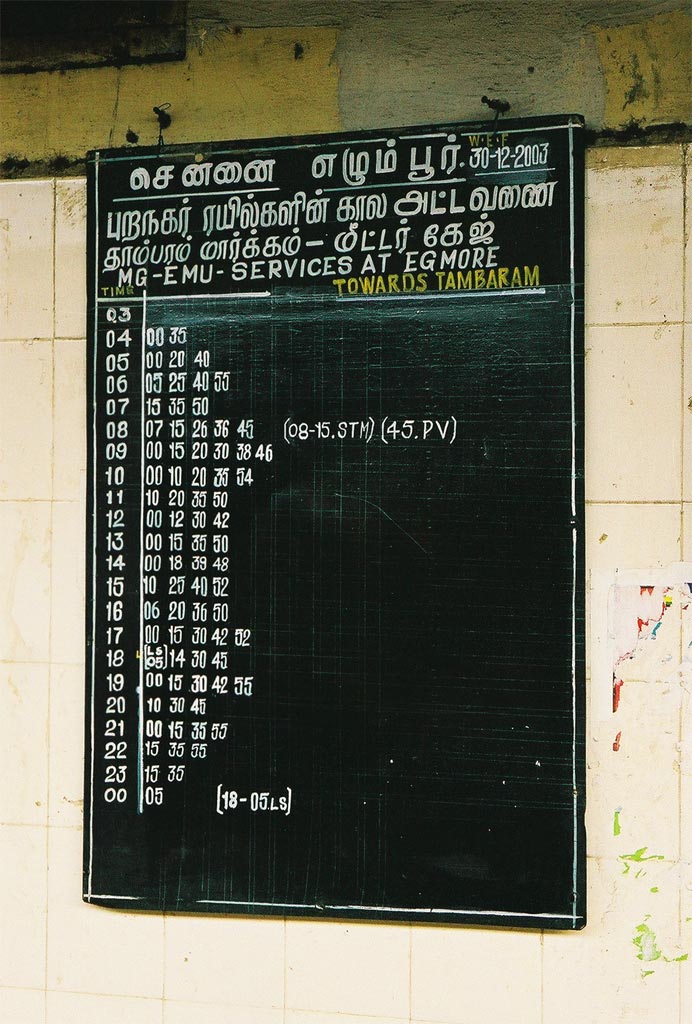 சென்னை எழும்பூர். W.E.F 30-12-2003
புறநகர் ரயில்களின் கால அட்டவணை
தாம்பரம் மார்க்கம் – மீட்டர் கேஜ்
MG-EMU-SERVICES AT EGMORE
TIME TOWARDS TAMBARAM
03
04 00 35
05 00 20 40
06 05 25 40 55
07 15 35 50
08 07 15 26 36 45 (08-15.STM) (45.PV)
09 00 15 20 30 38 46
10 00 10 20 35 54
11 10 20 35 50
12 00 12 30 42
13 00 15 35 50
14 00 18 39 48
15 10 25 40 52
16 06 20 36 50
17 00 15 30 42 52
18 (LS 05) 14 30 45
19 00 15 30 42 55
20 10 30 45
21 00 15 35 55
22 15 35 55
23 15 35
00 05 (18-05.LS)